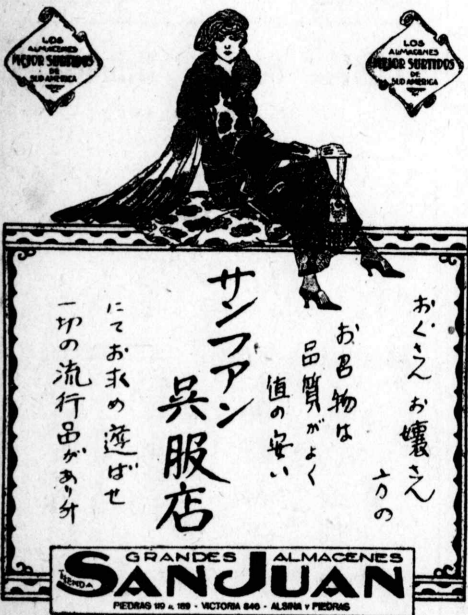 LOS
ALMACENES
MEJOR SURTIDOS
DE
SUD AMERICA
LOS
ALMACENES
MEJOR SURTIDOS
DE
SUD AMERICA
おくさん お嬢さん
方の
お召物は
品質がよく
値の安い
サンフアン
呉服店
にてお求め遊ばせ
一切の流行品があります
TIENDA
GRANDES ALMACENES
SAN JUAN
PIEDRAS 119 A 189 - VICTORIA 846 - ALSINA Y PIEDRAS